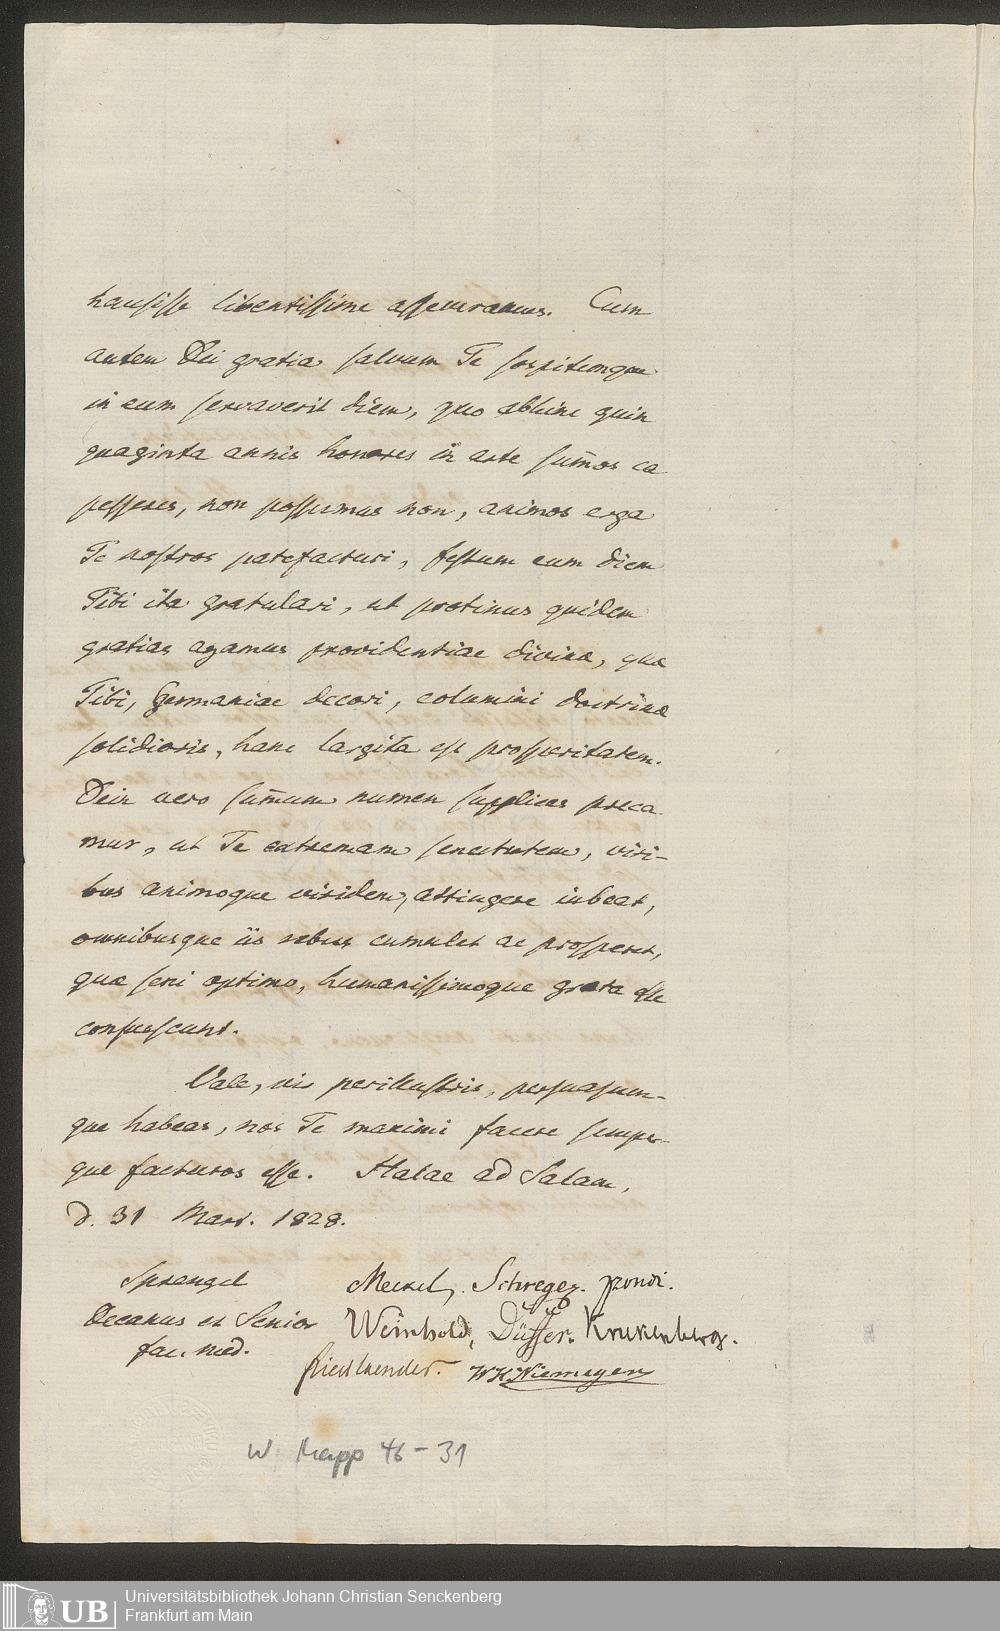 hausisse libentissime asseveramus. Cum
autem Dei gratia salvum Te sospitemque
in eum servaverit diem, quo abhinc quin
quaginta annis honores in arte sum̄os ca
pesseres, non possumus non, animos erga
Te nostros patefacturi, festum eum diem
Tibi ita gratulari, ut protinus quidem
gratias agamus providentiae divinæ, quæ
Tibi, Germaniae decori, columini doctrinæ
solidioris, hanc largita est prosperitatem.
Dein vero sum̄um numen supplices preca
mur, ut Te extremam senectutem, viri-
bus animoque viridem, attingere iubeat,
omnibusque iis rebus cumulet ac prosperet,
quæ seni optimo, humanissimoque grata esse
consuescunt.
Vale, vir perillustris, persuasum-
que habeas, nos Te maximi facere semper-
que facturos esse. Halae ad Salam,
d. 31 Mart. 1828.
Sprengel
Decanus et Senior
fac. med.
Meckel, Schreger,
Weinhold, Krukenberg.
Friedlaender. WHNiemeyer
W Mapp 46-31
UB
Universitätsbibliothek Johann Christian Senckenberg
Frankfurt am Main